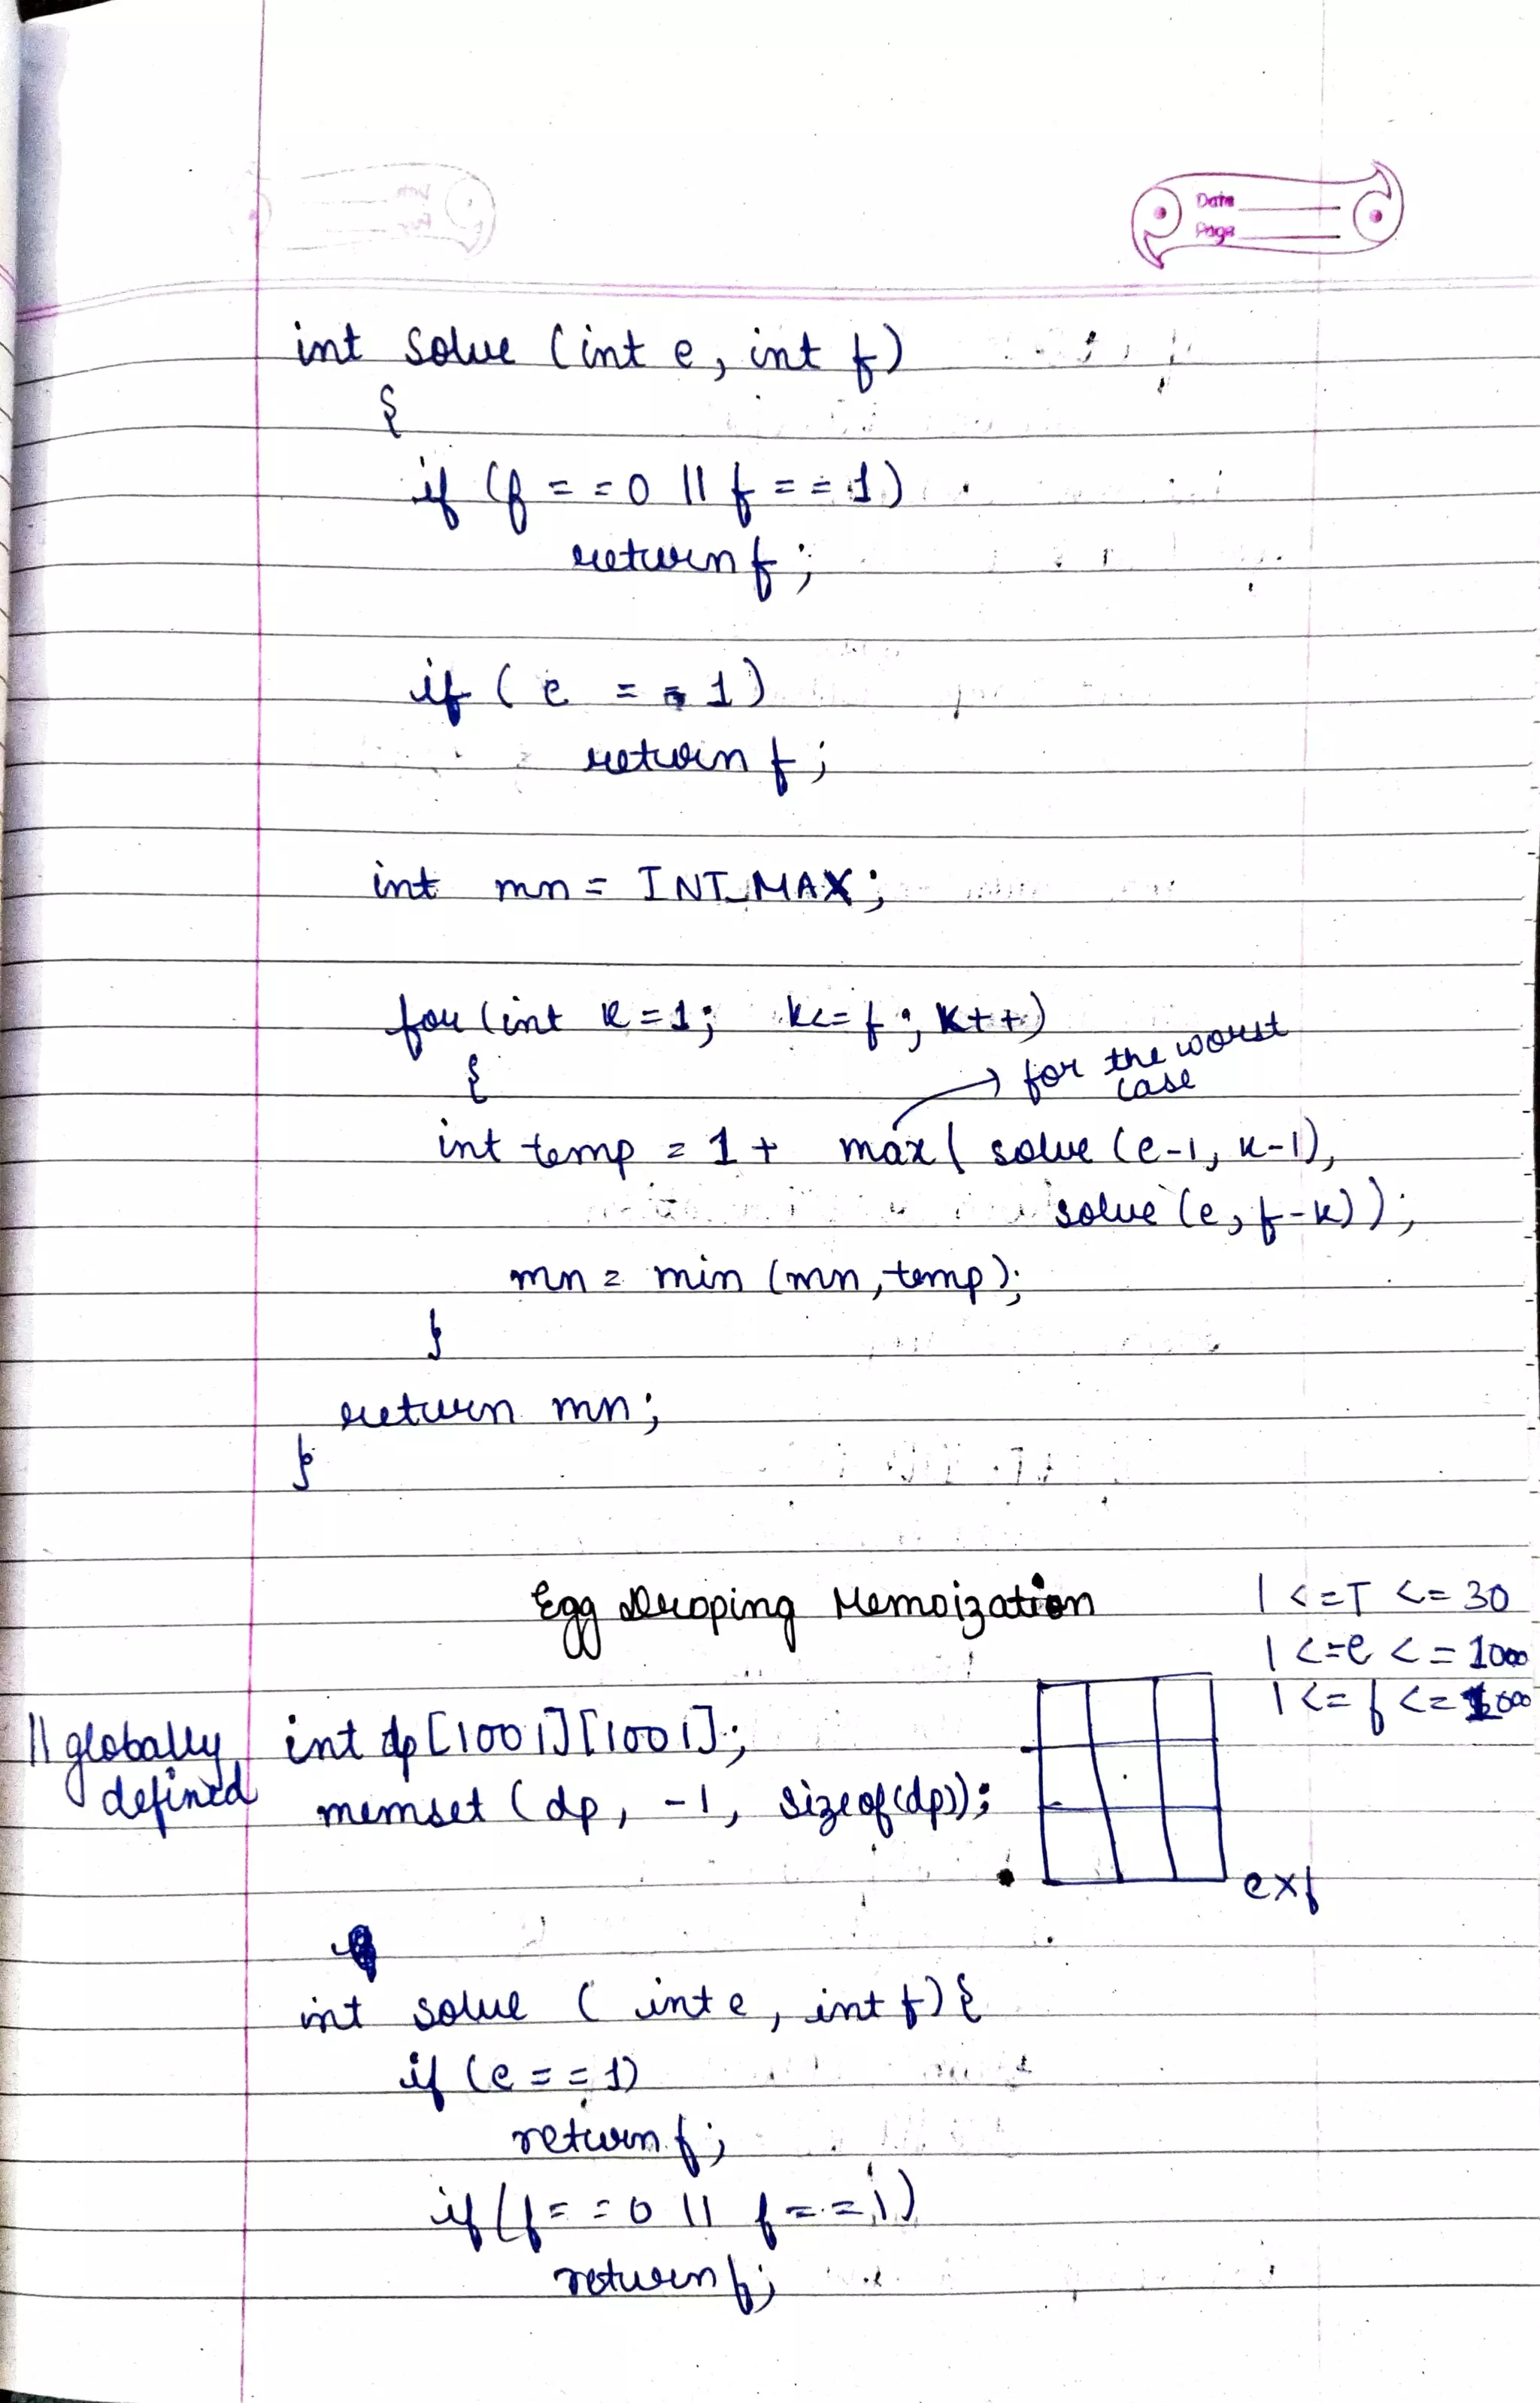 Date
Page
int solve (int e, int f)
{
if (f == 0 || f == 1)
return f;
if (e == 1)
return f;
int mn = INT_MAX;
for (int k=1; k<=f; k++)
{
→ for the worst
case
int temp = 1 + max( solve (e-1, k-1),
solve (e, f-k));
mn = min (mn, temp);
}
return mn;
}
Egg Droping Memoization
1 <= T <= 30
1 <= e <= 1000
1 <= f <= 1000
|| globally
defined
int dp[1001][1001];
memset (dp, -1, sizeof(dp));
exf
int solve ( int e, int f) {
if (e == 1)
return f;
if (f == 0 || f == 1)
return f;